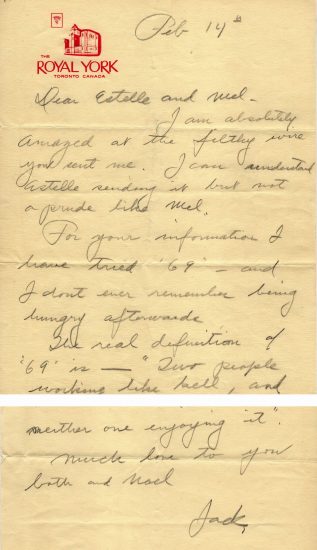 THE
ROYAL YORK
TORONTO CANADA
Feb 14th
Dear Estelle and Mel -
I am absolutely
amazed at the filthy wire
you sent me. I can understand
Estelle sending it but not
a prude like Mel.
For your information I
have tried '69' - and
I dont ever remember being
hungry afterwards
The real definition of
'69' is - "Two people
working like hell, and
neither one enjoying it".
Much love to you
both and Noel
Jack,